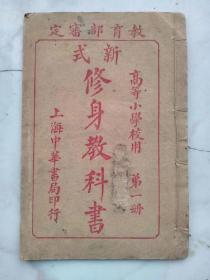 教育部審定
新式
高等小學校用 第一册
修身教科書
上海中華書局印行